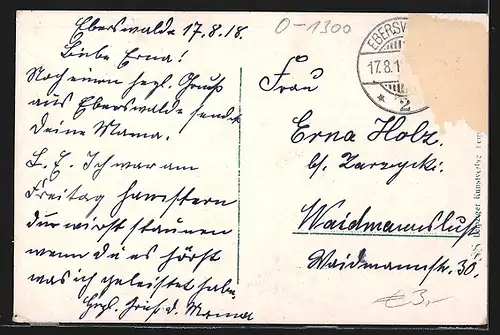 Eberswalde 17.8.18.
Liebe Erna!
Noch einen herzl. Gruß
aus Eberswalde sendet
deine Mama.
L. E. Ich war am
Freitag hamstern
du wirst staunen
wenn du es hörst
was ich geleistet habe.
Herzl. Gruß d. Mama
0-1300
EBERSW
17.8.1
* 2
Frau
Erna Holz.
bz. Zarzycki.
Waidmannslust
Waidmannstr. 30.
€3,-
Kunstverlag